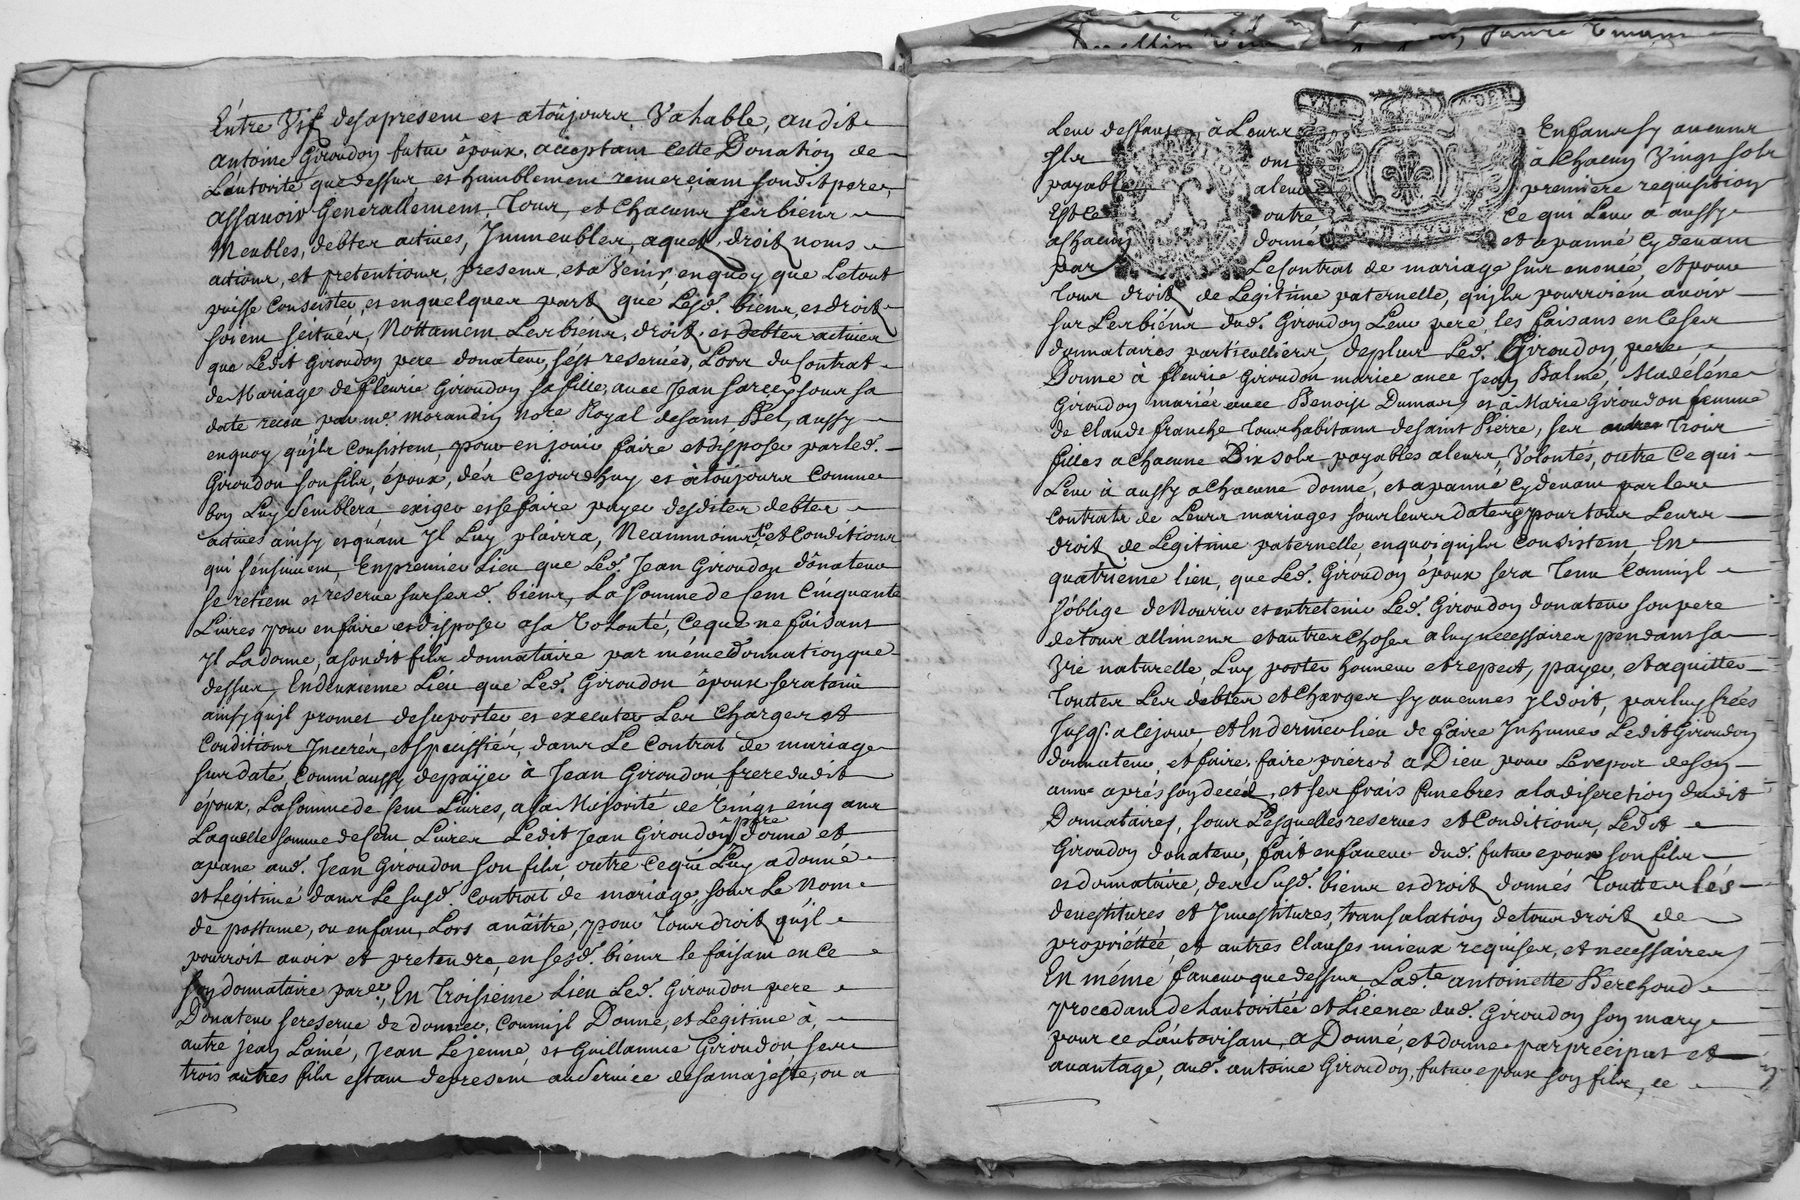 Entre Vif desapresent et atoûjours Vahable, audit
antoine Giroudon futur époux, acceptant Cette Donation de
Lautorité quedessus, et humblement remerciant sondit pere,
assavoir Generallement Tous, et Chacuns ses biens
Meubles, debtes actives, Immeubles, aquets, droits noms
actions, et pretentions, presens, et a Venir, enquoy que Letout
puisse Consister, et enquelques part que Lesd. biens, et droits
soient scitués, Nottament Les biéns, droits, et debtes actives
que Ledit Giroudon pere donateur, s'ést reservés, Lors du Contrat
de Mariage de fleurie Giroudon sa fille, avec Jean sous sa
date receu par me. morandin nore Royal desaint Bel, aussy
enquoy qu'ils Consistent, pour en jouir faire et disposer parled.
Giroudon son fils, époux, dés Cejourdhuy et àtoujours Comme
bon Luy Semblera exiger et sefaire payer desdites debtes
actives ainsy et quant Jl Luy plaira, Neanmoins et Conditions
qui s'énsuivent, En premier Lieu que Led. Jean Giroudon dônateur
se retient et reserve sur sesd. biéns, La somme de Cent Cinquante
Livres pour en faire et disposer a sa Volonté, Ceque ne faisant
Jl La donne, asondit fils donnataire par mémedonnation que
dessus, Endeuxieme Lieu que Led. Giroudon époux seratenu
ainsy qu'jl promet desuporter et executer Les Charges et
Conditions Jncerés, et specissiés, dans Le Contrat de mariage
sus daté, Comm'aussy depaÿer à Jean Giroudon frere dudit
époux, La somme de Cent Livres, a sa Majorité de Vingt cinq ans
Laquelle somme deCent Livres Ledit Jean Giroudon pere donne et
apane aud. Jean Giroudon son fils, outre Cequi Luy a donné
et Legitimé dans Le susd. Contrat de mariage sous Le Nom
de postume, ou enfant, Lors anâitre, pour Tous droits qu'jl
pourroit avoir et pretendre, en sesd. biéns le faisant en Ce
son donnataire parer, En Troisieme Lieu Led. Giroudon pere
Donateur sereserve de donner, Comm'jl Donne, et Legitime à
autre jean Lainé, Jean Lejeune, et Guillaume Giroudon, ses
trois autres fils estant depresent auService desamajesté, ou a
Leur deffaut, à Leurs Enfans sy aucuns
Jls ont à Chacun Vingt sols
payables aleur premiere requisition
Est Ce outre Ce qui Leur à aussy
achacun donné et apanné Cy devant
par Le Contrat de mariage sus enoncé, et pour
Tous droits de Legitime paternelle, qu'jls pourroient avoir
sur Les biéns dud. Giroudon Leur pere, les faisans en Ce ses
donnataires particulliers, deplus Led. Giroudon pere
Donne à fleurie Giroudon mariee avec Jean Balme, Madéléne
Giroudon mariée avec Benoist Dumas, et à Marie Giroudon femme
de Claude franche Tous habitans desaint Pierre, ses autres Trois
filles a Chacune Dix sols payables a leurs, Volontés, outre Ce qui
Leur à aussy a Chacune donné, et apanné Cy devant par les
Contrats de Leurs mariages sous leurs dates, pour tous Leurs
droits de Legitime paternelle, enquoi qu'jls Consistent, En
quatriéme lieu, que Led. Giroudon époux sera Tenu Comm'jl
s'oblige de Nourrir et entretenir Led. Giroudon donateur son pere
detous allimens et autres Choses a luy necessaires pendant sa
Vie naturelle, Luy porter honneur et repect, payer, et aquitter
Touttes Les debtes et Charges sy aucunes jl doit, par luy
Jusq. a Cejour, et En dernier lieu de faire Jnhumer Ledit Giroudon
donnateur, et faire, faire priéres à Dieu pour Le repos de son
ame aprés son decéd, et ses frais funebres a la discretion dudit
Donnataires, sous Lesquelles reserves et Conditions, Ledit
Giroudon donateur, fait enfaveur dud. futur epoux son fils
et donnataire, des Susd. biens et droits donnés Touttes lés
devestitures et Jnvestitures, translation detous droits de
propriéttée, et autres Clauses mieux requises, et necessaires
En même faveur que dessus Lad.te antoinette Berchoud
procedant de Lautoritée et Licence dud. Giroudon son mary
pour ce L'autorisant, a Donné, et donne par préciput et
avantage, aud. antoine Giroudon, futur epoux son fils, ce